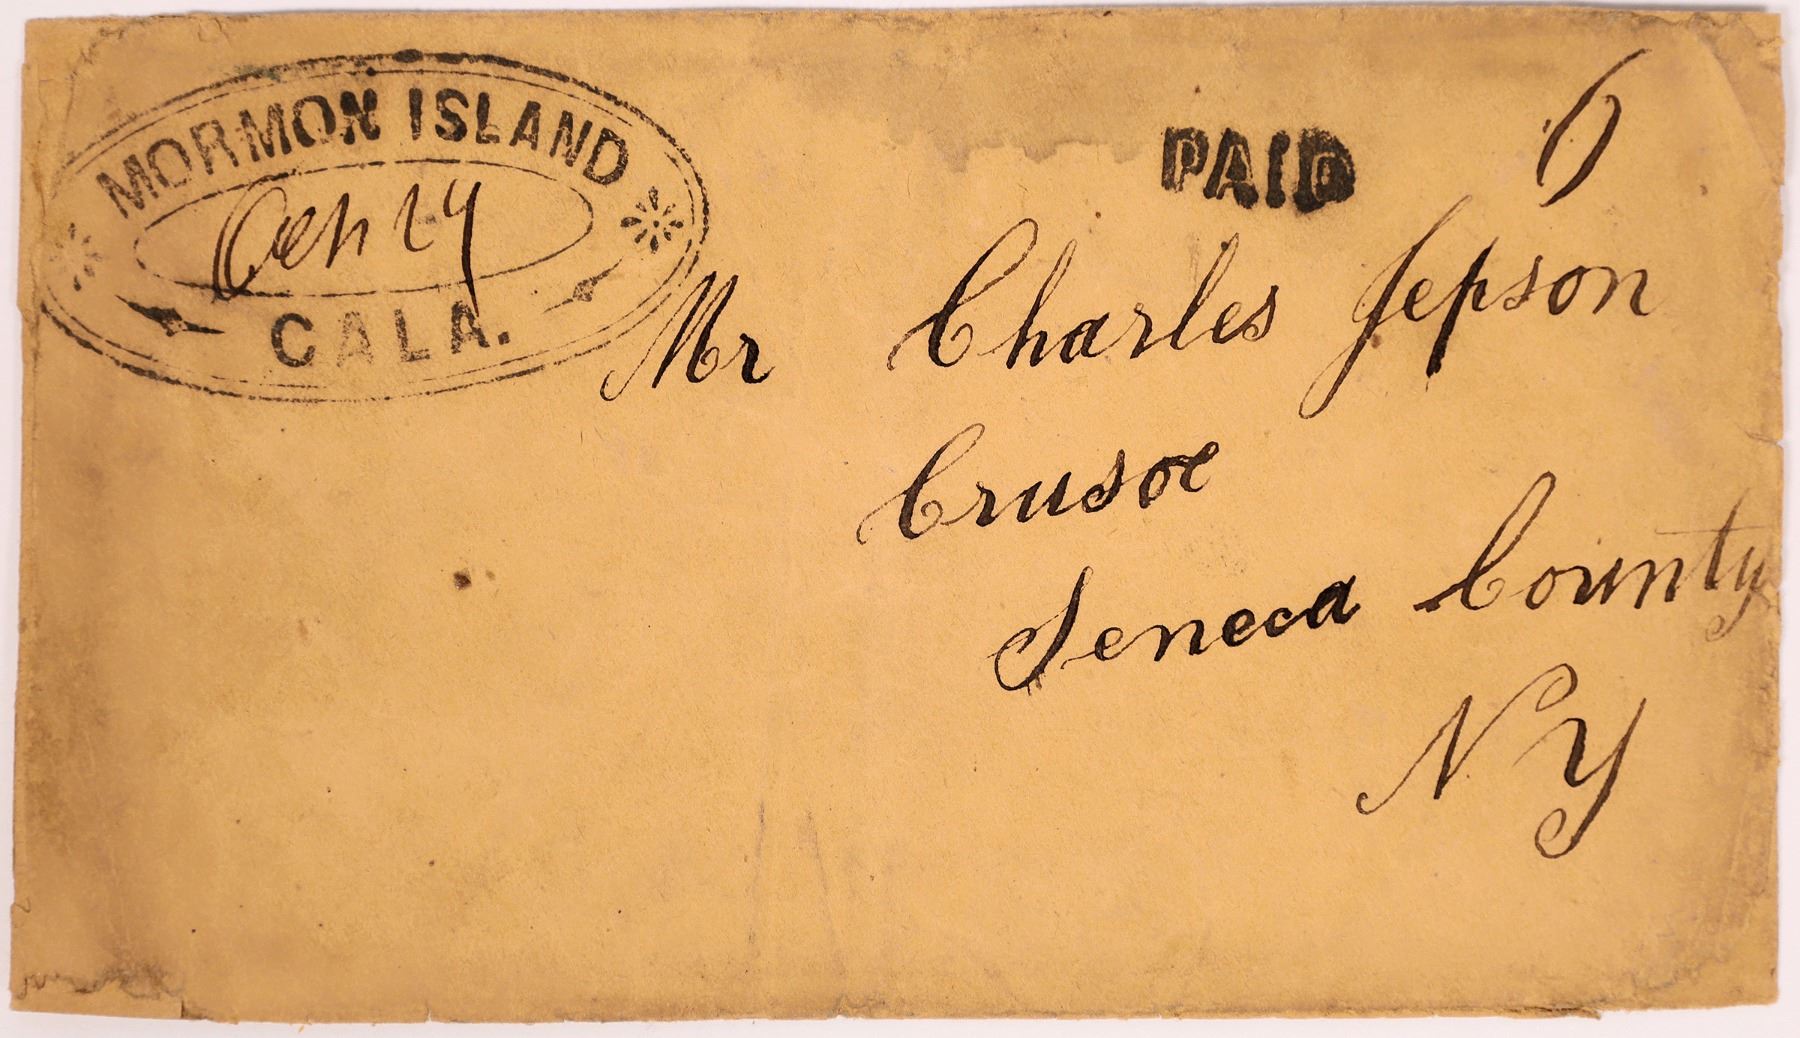 MORMON ISLAND
CALA.
PAID
6
Mr Charles Jepson
Crusoe
Seneca County
NY